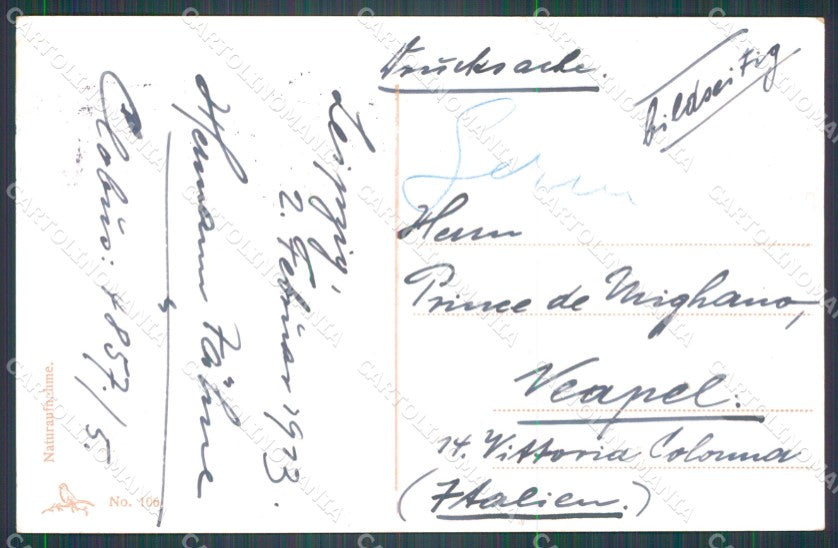 Drucksache.
bildseitig
Herrn
Prince de Mighano,
Neapel.
14. Vittoria Colonna
(Italien.)
Leipzig,
2. Februar 1923.
Hermann Kähne
Globus: 4857/5.
Naturaufnahme.
No. 106
CARTOLINOMANIA